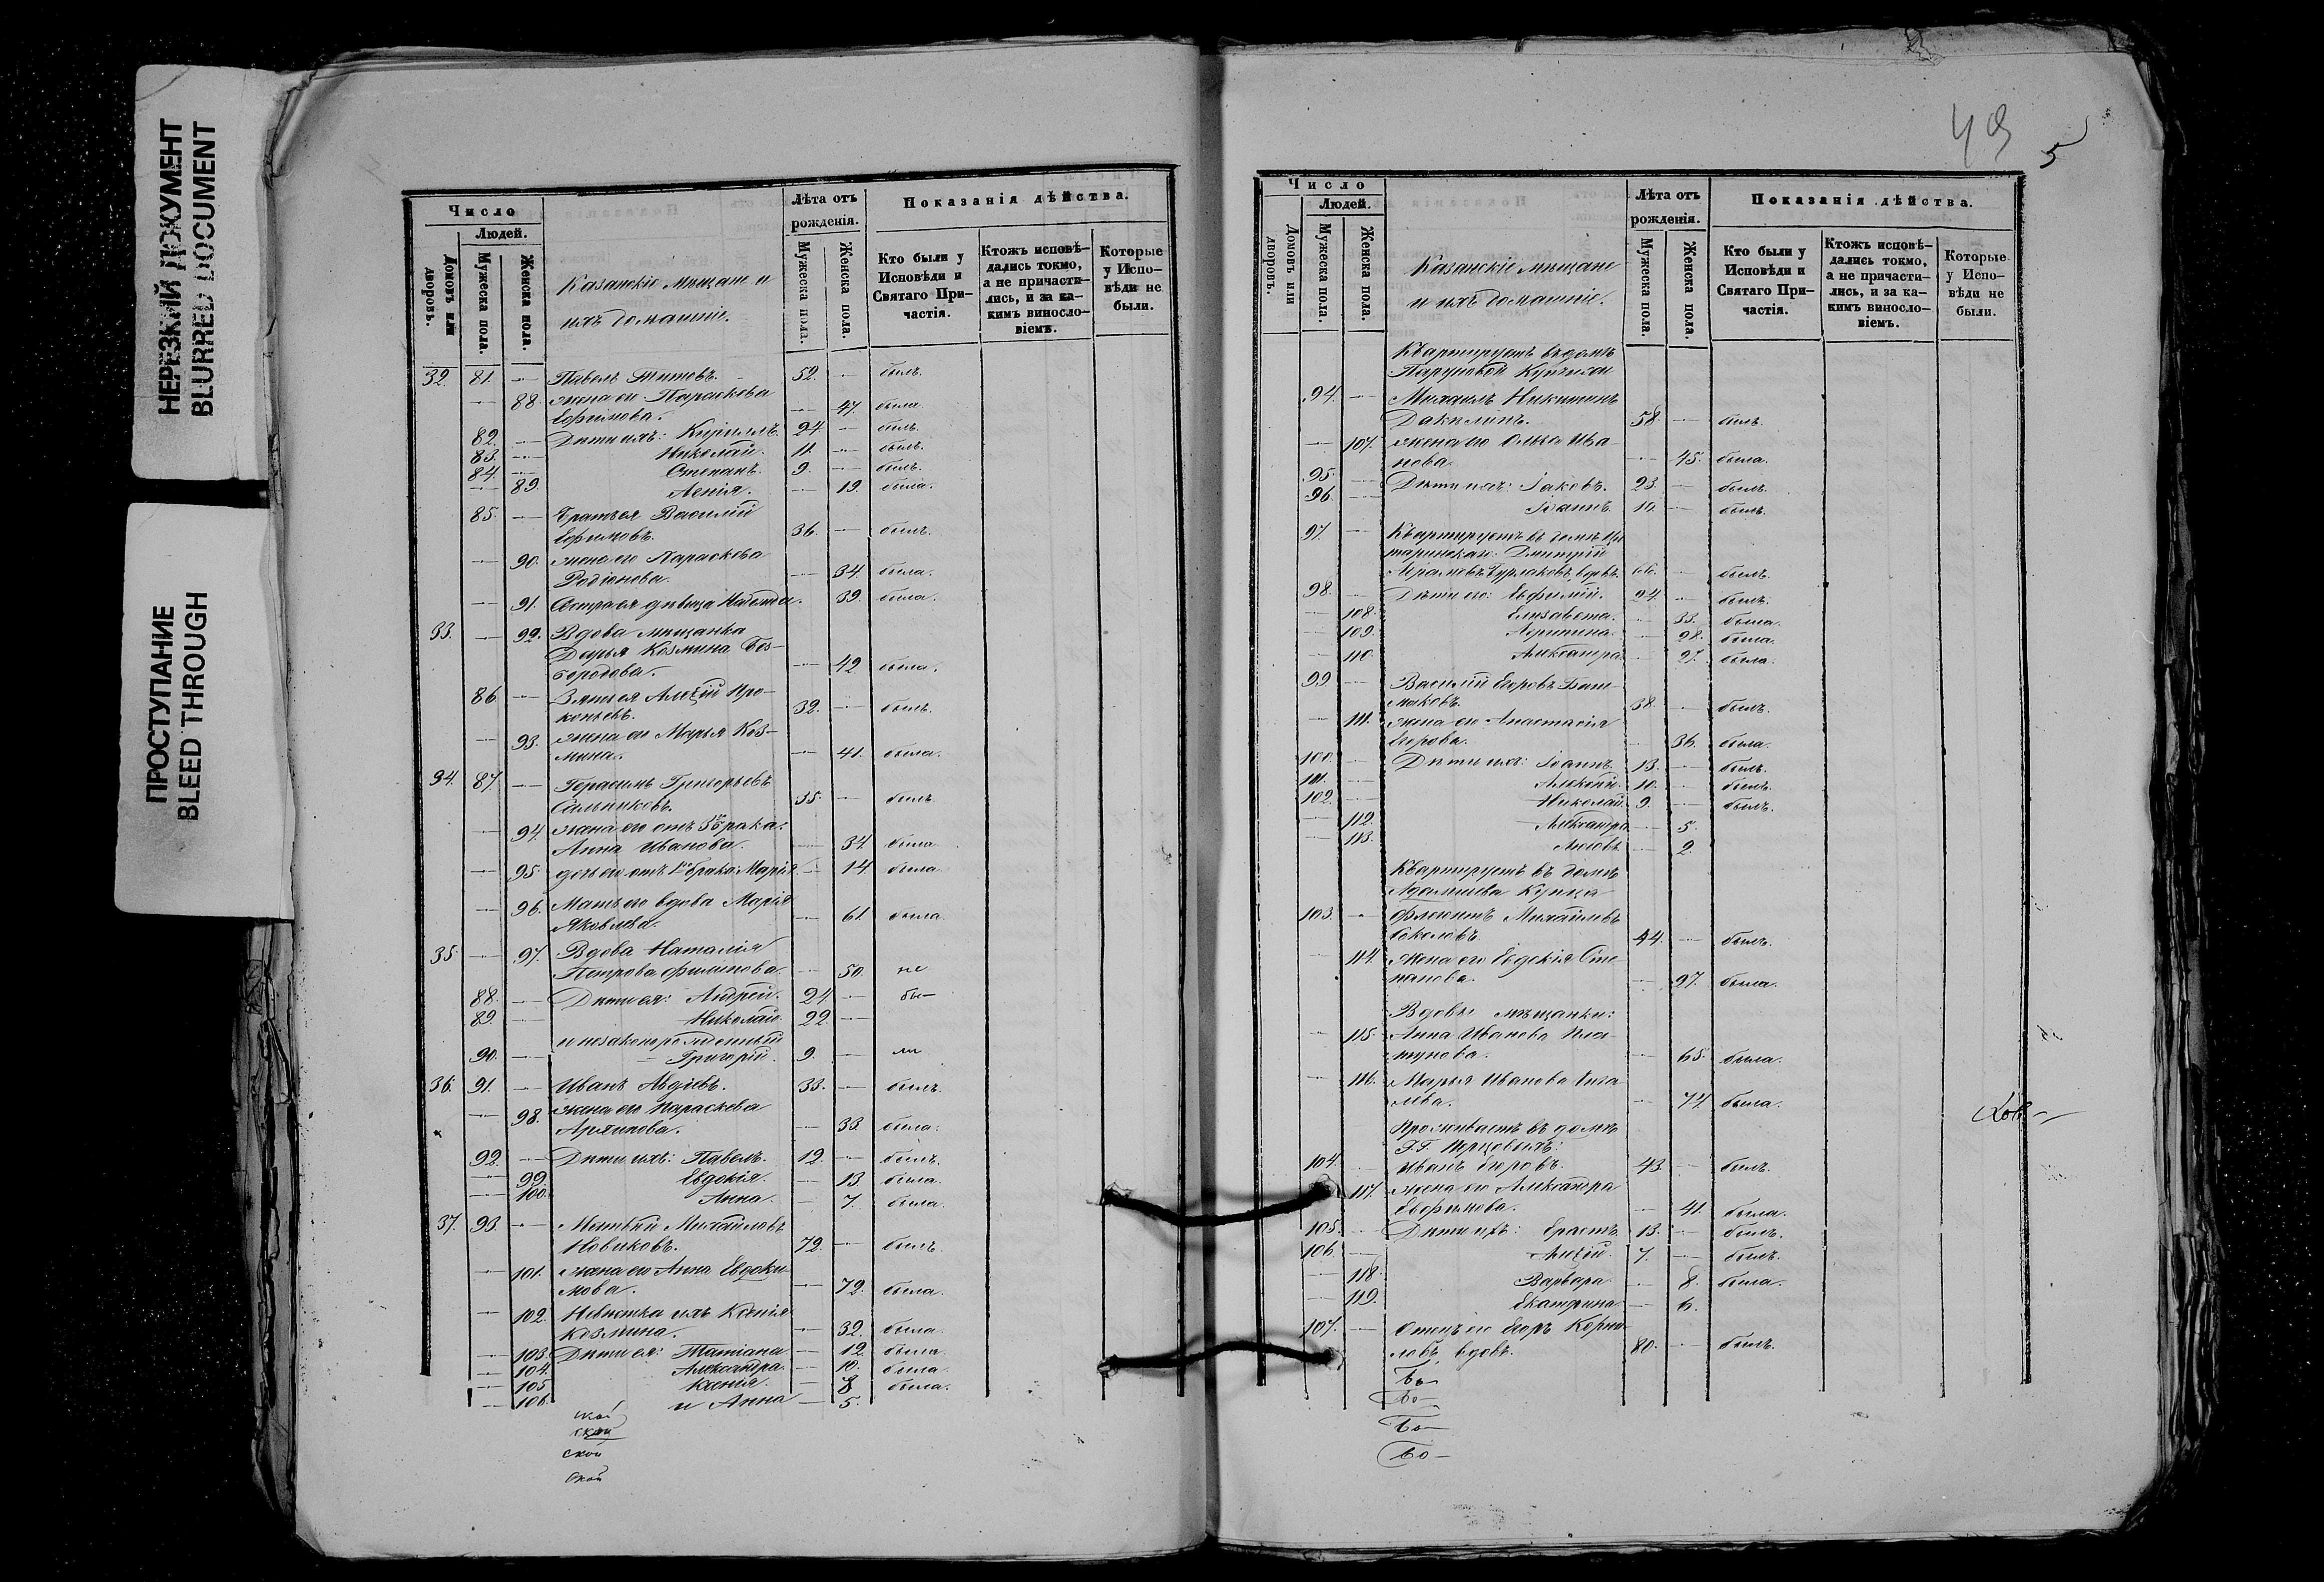 НЕРЕЗКИЙ ДОКУМЕНТ
BLURRED DOCUMENT
ПРОСТУПАНИЕ
BLEED THROUGH
Число
Людей.
Домовъ или дворовъ.
Мужеска пола.
Женска пола.
Казанскіе Мѣщане и
ихъ домашніе.
Лѣта отъ рожденія.
Мужеска пола.
Женска пола.
Показанія дѣйства.
Кто были у Исповѣди и Святаго Причастія.
Ктожъ исповѣдались токмо, а не причастились, и за какимъ винословіемъ.
Которые у Исповѣди не были.
32. 81. — Павелъ Титовъ. 52. — былъ.
— 88. жена его Параскова
Ефимова. — 47. была
82. — Дѣти ихъ: Кириллъ. 24 — былъ.
83. — Николай. 11. — былъ.
84. — Степанъ. 9. — былъ.
— 89. 19. была.
85. — Братъ ея Василій
Ефимовъ. 36. — былъ.
— 90. жена его Параскева
Родіонова. — 34. была.
— 91. Сестра ея дѣвица 39. была.
33. — 92. Вдова мѣщанка
Дарья Козмина Без-
бородова. — 42. была.
86 — Зять ея Алексій Про-
копьевъ. 32. — былъ.
— 93. жена его Марья Коз-
мина. — 41. была.
34. 87. — Герасимъ Григорьевъ
Сальниковъ. 35. — былъ
— 94. жена его отъ брака.
Анна Иванова. — 34 была
— 95. дочь его отъ 1го брака Марія — 14. была
— 96. Мать его вдова Марія
Яковлева. — 61 была
35. — 97. Вдова Наталія
Петрова Филипова. — 50. не
88. — Дѣти ея: Андрей. 24. — бы—
89. — Николай. 22. —
и незаконорожденный
90. — Григорій. 9. — ли
36. 91. — Иванъ Авдіевъ. 33. — былъ.
— 98. жена его Параскева
— 33. была.
92. — Дѣти ихъ: Павелъ. 12. — былъ.
— 99. Евдокія. — 13. была.
— 100. Анна. — 7. была.
37. 93. — Матвѣй Михайловъ
Новиковъ. 72. — былъ.
— 101. жена его Анна Евдоки-
мова. — 72. была.
— 102. Невѣстка ихъ Ксенія
Козмина. — 32. была.
— 103. Дѣти ея: Татіана — 12. была.
— 104. Александра — 10. была
— 105. Ксенія. — 8 была.
— 106. и Анна — 5.
ской
ской
ской
ской
49
5
Число
Людей.
Домовъ или дворовъ.
Мужеска пола.
Женска пола.
Казанскіе Мѣщане
и ихъ домашніе.
Лѣта отъ рожденія.
Мужеска пола.
Женска пола.
Показанія дѣйства.
Кто были у Исповѣди и Святаго Причастія.
Ктожъ исповѣдались токмо, а не причастились, и за какимъ винословіемъ.
Которые у Исповѣди не были.
Квартируетъ въ домѣ
94. — Михаилъ Никитинъ
58. — былъ.
— 107. жена его Ольга Ива-
нова — 45. была.
95. — Дѣти ихъ: Іаковъ. 23. — былъ.
96. — Іоаннъ 10. — былъ.
97. — Квартируетъ въ домѣ
Дмитрій
Бурлаковъ, вдовъ. 66. — былъ.
98. — Дѣти его: Евфимій. 24. — былъ.
— 108. Елизавета. — 33. была.
— 109. — 28. была.
— 110. Александра — 27. была.
99. — Василій Егоровъ Баш-
маковъ. 38. — былъ.
— 111. жена его Анастасія
Егорова. — 36. была.
100. — Дѣти ихъ: Іоаннъ 13. — былъ.
101. — Алексѣй. 10. — былъ.
102. — Николай 9. — былъ.
— 112. Александра — 5.
— 113. Любовь — 2.
Квартируетъ въ домѣ
Купца
103. — Михайловъ
Соколовъ. 44. — былъ.
— 114. жена его Евдокія Сте-
панова. — 27. была.
Вдовы мѣщанки:
— 115. Анна Иванова
— 65. была.
— 116. Марья Иванова
— 74 была.
Проживаетъ въ домѣ
104. — Иванъ Егоровъ. 43. — былъ.
— 117. жена его Александра
Ефимова. — 41. была.
105. — Дѣти ихъ: Ерастъ. 13. — былъ.
106. — Алексій. 7. — былъ.
— 118. Варвара — 8. была.
— 119. Екатерина — 6.
107. — Отецъ его Егоръ Корни-
ловъ, вдовъ. 80. — былъ.
Бо—
Бо—
Бо—
Бо—